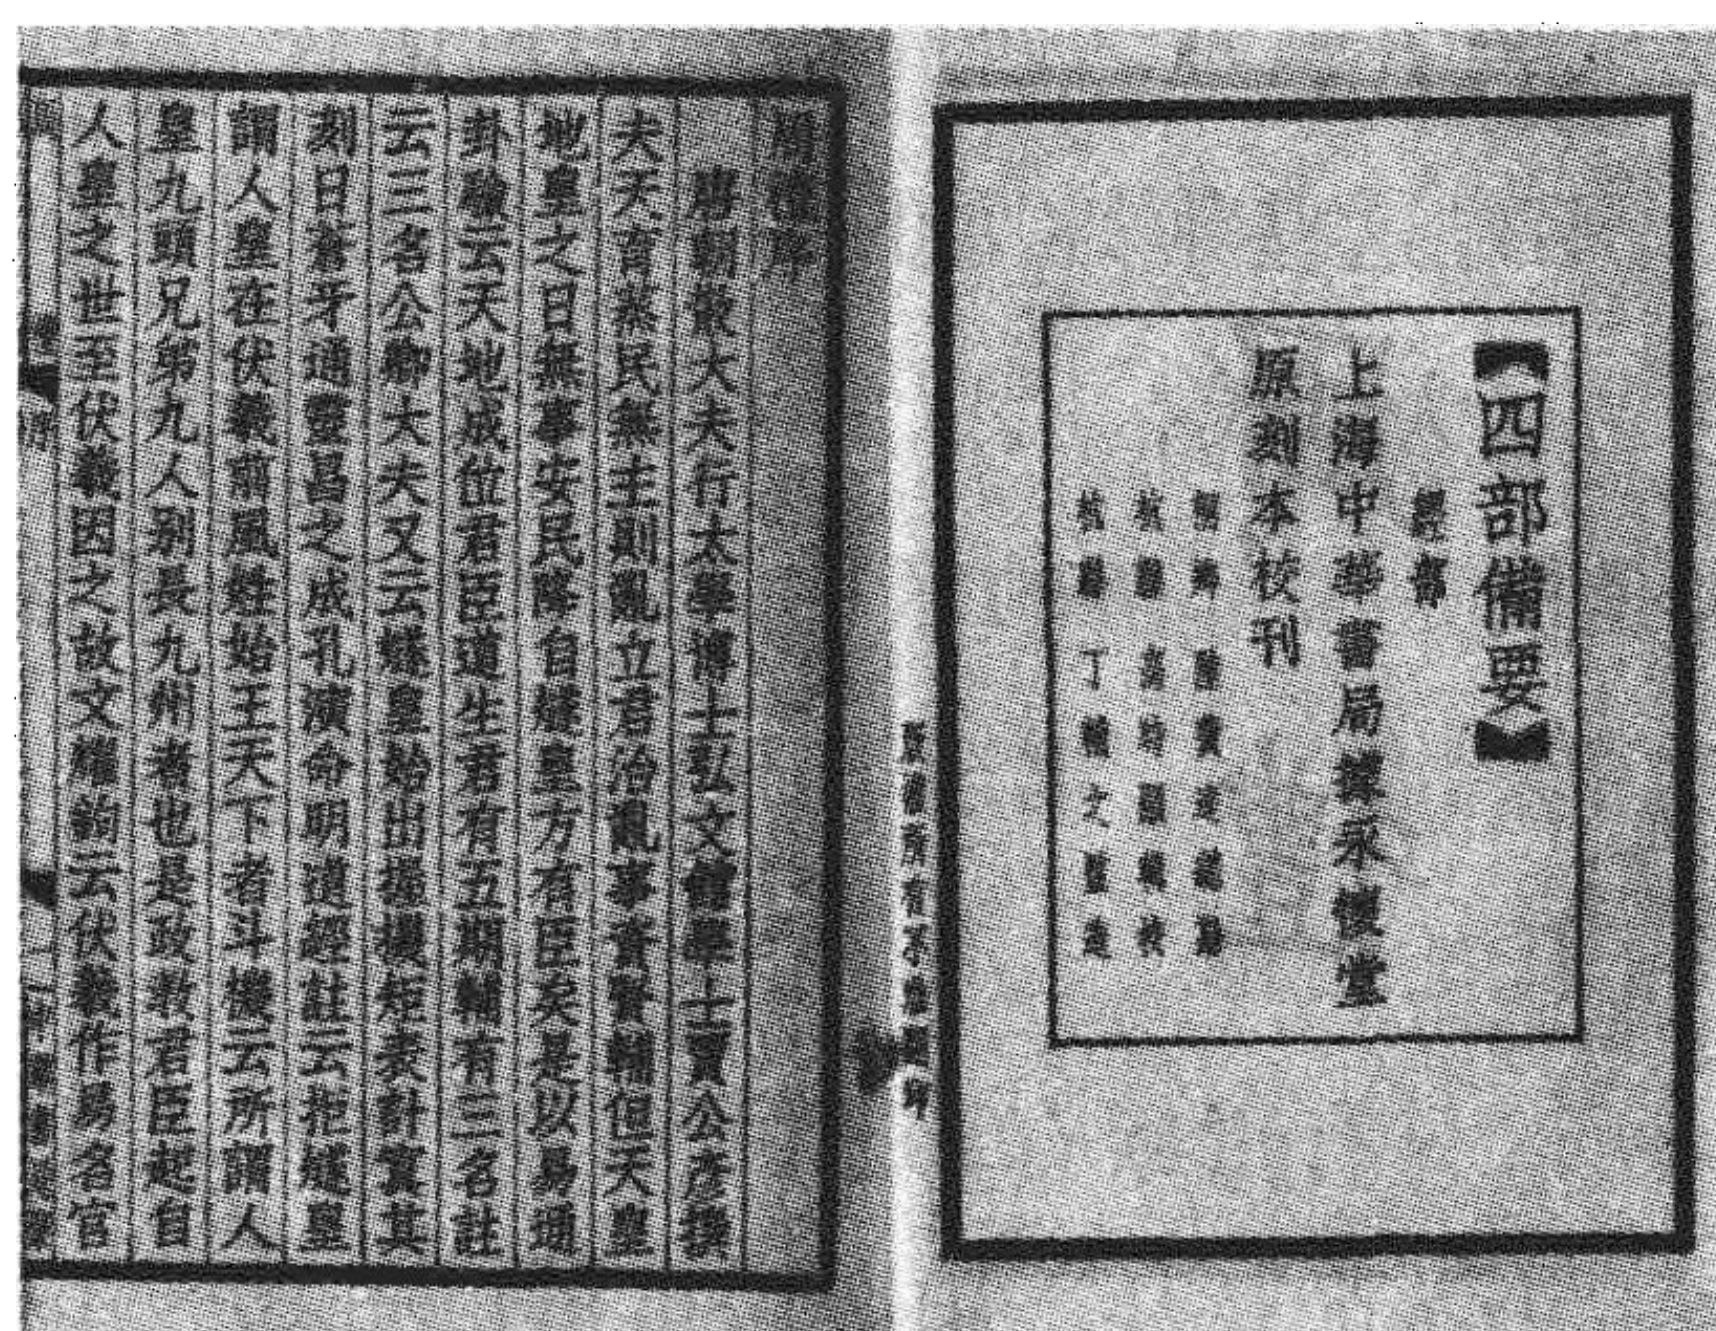 【四部備要】
經部
上海中華書局據永懷堂
原刻本校刊
桐鄉 陸費逵總勘
杭縣 高時顯輯校
杭縣 丁輔之監造
版權所有不許翻印
周禮序
唐朝散大夫行太學博士弘文館學士賈公彥撰
夫天育蒸民無主則亂立君治亂事資賢輔但天皇
地皇之日無事安民降自燧皇方有臣矣是以易通
卦驗云天地成位君臣道生君有五期輔有三名註
云三名公卿大夫又云燧皇始出握機矩表計寘其
刻日蒼牙通靈昌之成孔演命明道經註云拒燧皇
謂人皇在伏羲前風姓始王天下者斗機云所謂人
皇九頭兄弟九人別長九州者也是政教君臣起自
人皇之世至伏羲因之故文耀鉤云伏羲作易名官